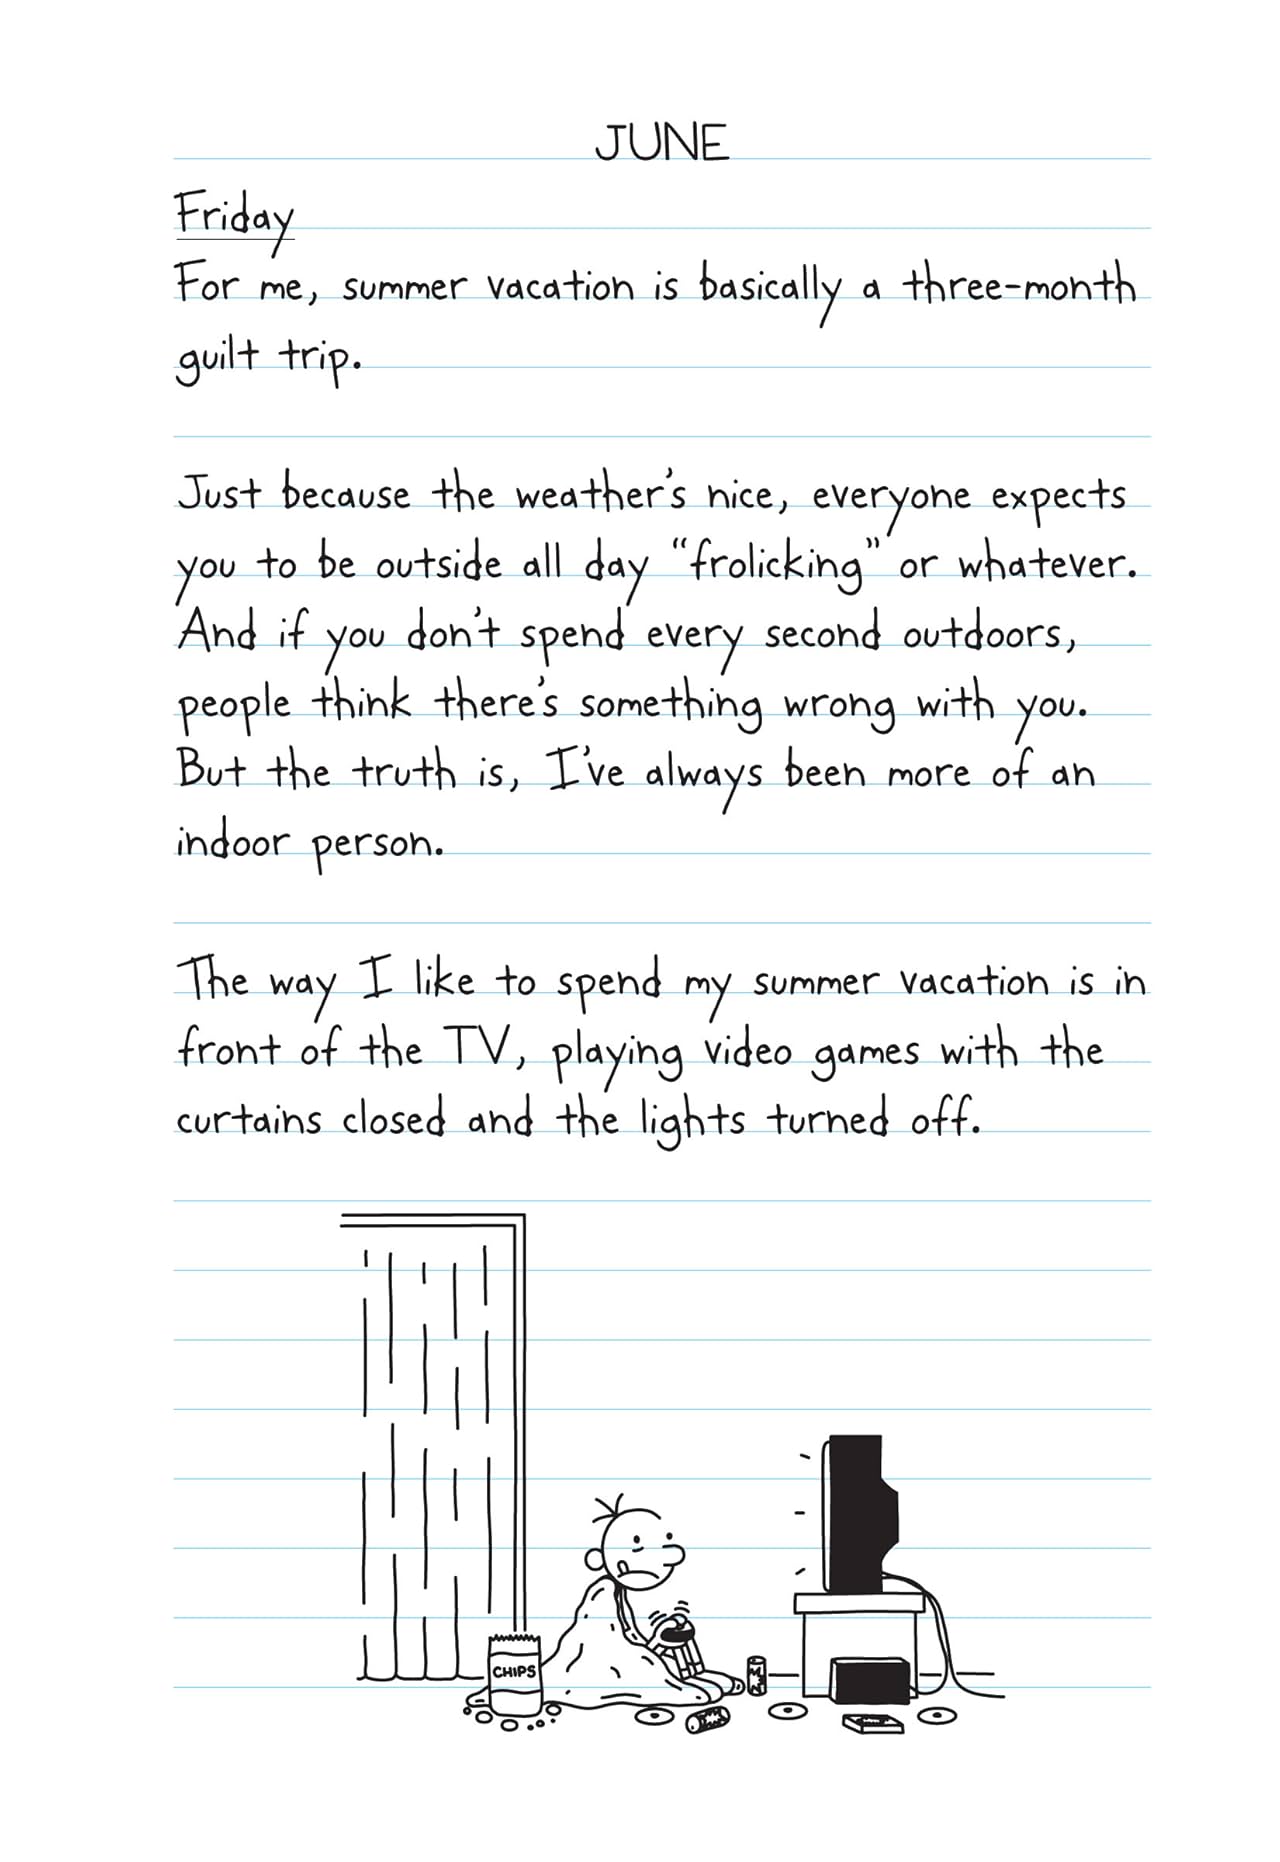 JUNE
Friday
For me, summer vacation is basically a three-month
guilt trip.
Just because the weather's nice, everyone expects
you to be outside all day “frolicking” or whatever.
And if you don't spend every second outdoors,
people think there's something wrong with you.
But the truth is, I've always been more of an
indoor person.
The way I like to spend my summer vacation is in
front of the TV, playing video games with the
curtains closed and the lights turned off.
CHIPS